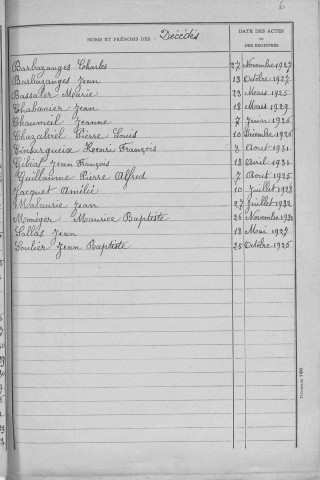 6
NOMS ET PRÉNOMS DES Décédés
DATE DES ACTES
OU
DES REGISTRES
Barbazanges Charles 27 Novembre 1927
Barbazanges Jean 13 Octobre 1927
Bassaler Marie 22 Mars 1925
Chabanier Jean 18 Mars 1929
Chaumeil Jeanne 7 Juin 1926
Chazalviel Pierre Louis 10 Décembre 1926
Cinbarqueix Henri François 3 Août 1931
Gibiat Jean François 18 Avril 1931
Guillaume Pierre Alfred 7 Août 1925
Jacquet Amélie 10 Juillet 1928
Malaurie Jean 27 Juillet 1932
Monéger Maurice Baptiste 26 Novembre 1930
Sallas Jean 18 Mai 1927
Soulier Jean Baptiste 25 Octobre 1926